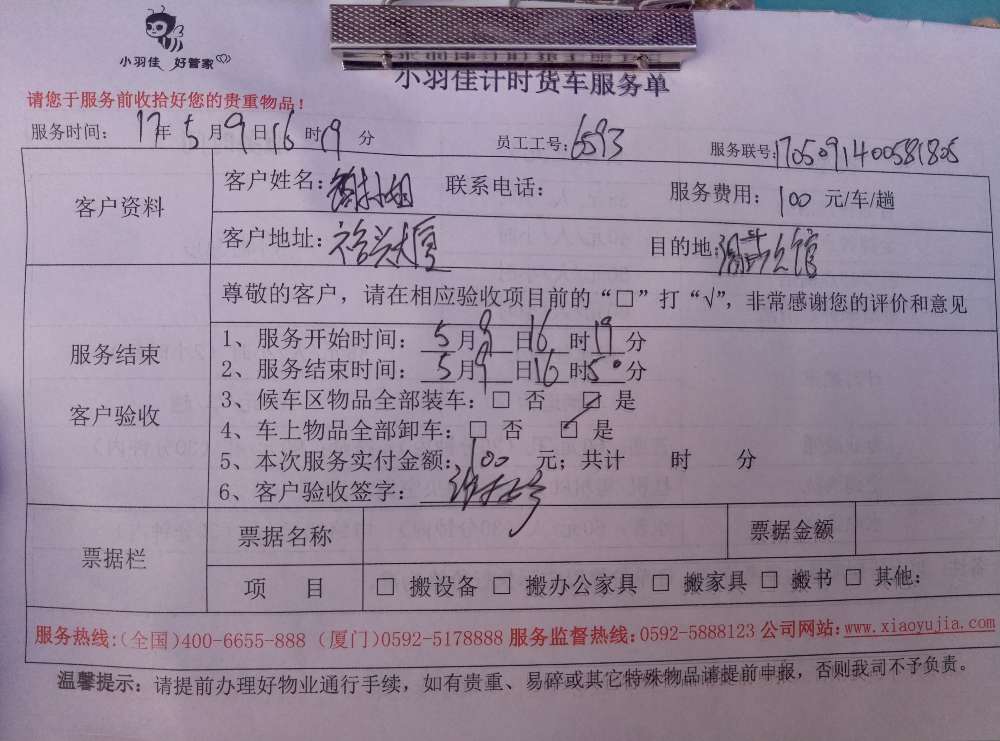 小羽佳 好管家
小羽佳计时货车服务单
请您于服务前收拾好您的贵重物品！
服务时间： 17年5月9日16时19分 员工工号：6593 服务联号：1705091400581805
客户资料
客户姓名： 联系电话： 服务费用：100 元/车/趟
客户地址：裕兴大厦 目的地：
尊敬的客户，请在相应验收项目前的“□”打“√”，非常感谢您的评价和意见
服务结束
客户验收
1、服务开始时间：5月9日16时19分
2、服务结束时间：5月9日16时50分
3、候车区物品全部装车：□ 否 ☑ 是
4、车上物品全部卸车：□ 否 ☑ 是
5、本次服务实付金额：100 元；共计 时 分
6、客户验收签字：
票据栏
票据名称 票据金额
项 目 □ 搬设备 □ 搬办公家具 □ 搬家具 □ 搬书 □ 其他：
服务热线：（全国）400-6655-888（厦门）0592-5178888 服务监督热线：0592-5888123 公司网站：www.xiaoyujia.com
温馨提示：请提前办理好物业通行手续，如有贵重、易碎或其它特殊物品请提前申报，否则我司不予负责。